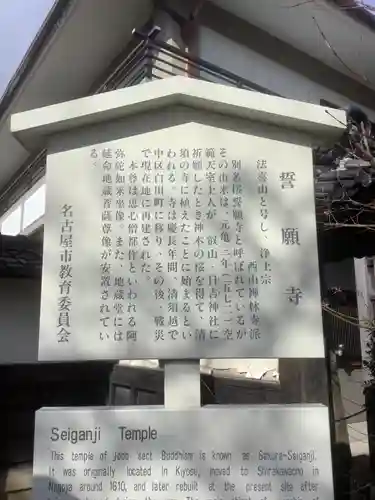 誓願寺
法喜山と号し、浄土宗
西山禅林寺派
別名桜誓願寺と呼ばれているが
その由来は、元亀二年（一五七一）空
範天室上人が、叡山・日吉神社に
祈願したとき神木の桜を得て、清
須の寺に植えたことに始まるとい
われる。寺は慶長年間、清須越で
中区白川町に移り、その後、戦災
で現在地に再建された。
本尊は恵心僧都作といわれる阿
弥陀如来坐像。また、地蔵堂には
延命地蔵菩薩尊像が安置されてい
る。
名古屋市教育委員会
Seiganji Temple
This temple of Jodo sect Buddhism is known as Sakura-Seiganji.
It was originally located in Kiyosu, moved to Shirakawacho in
Nagoya around 1610, and later rebuilt at the present site after